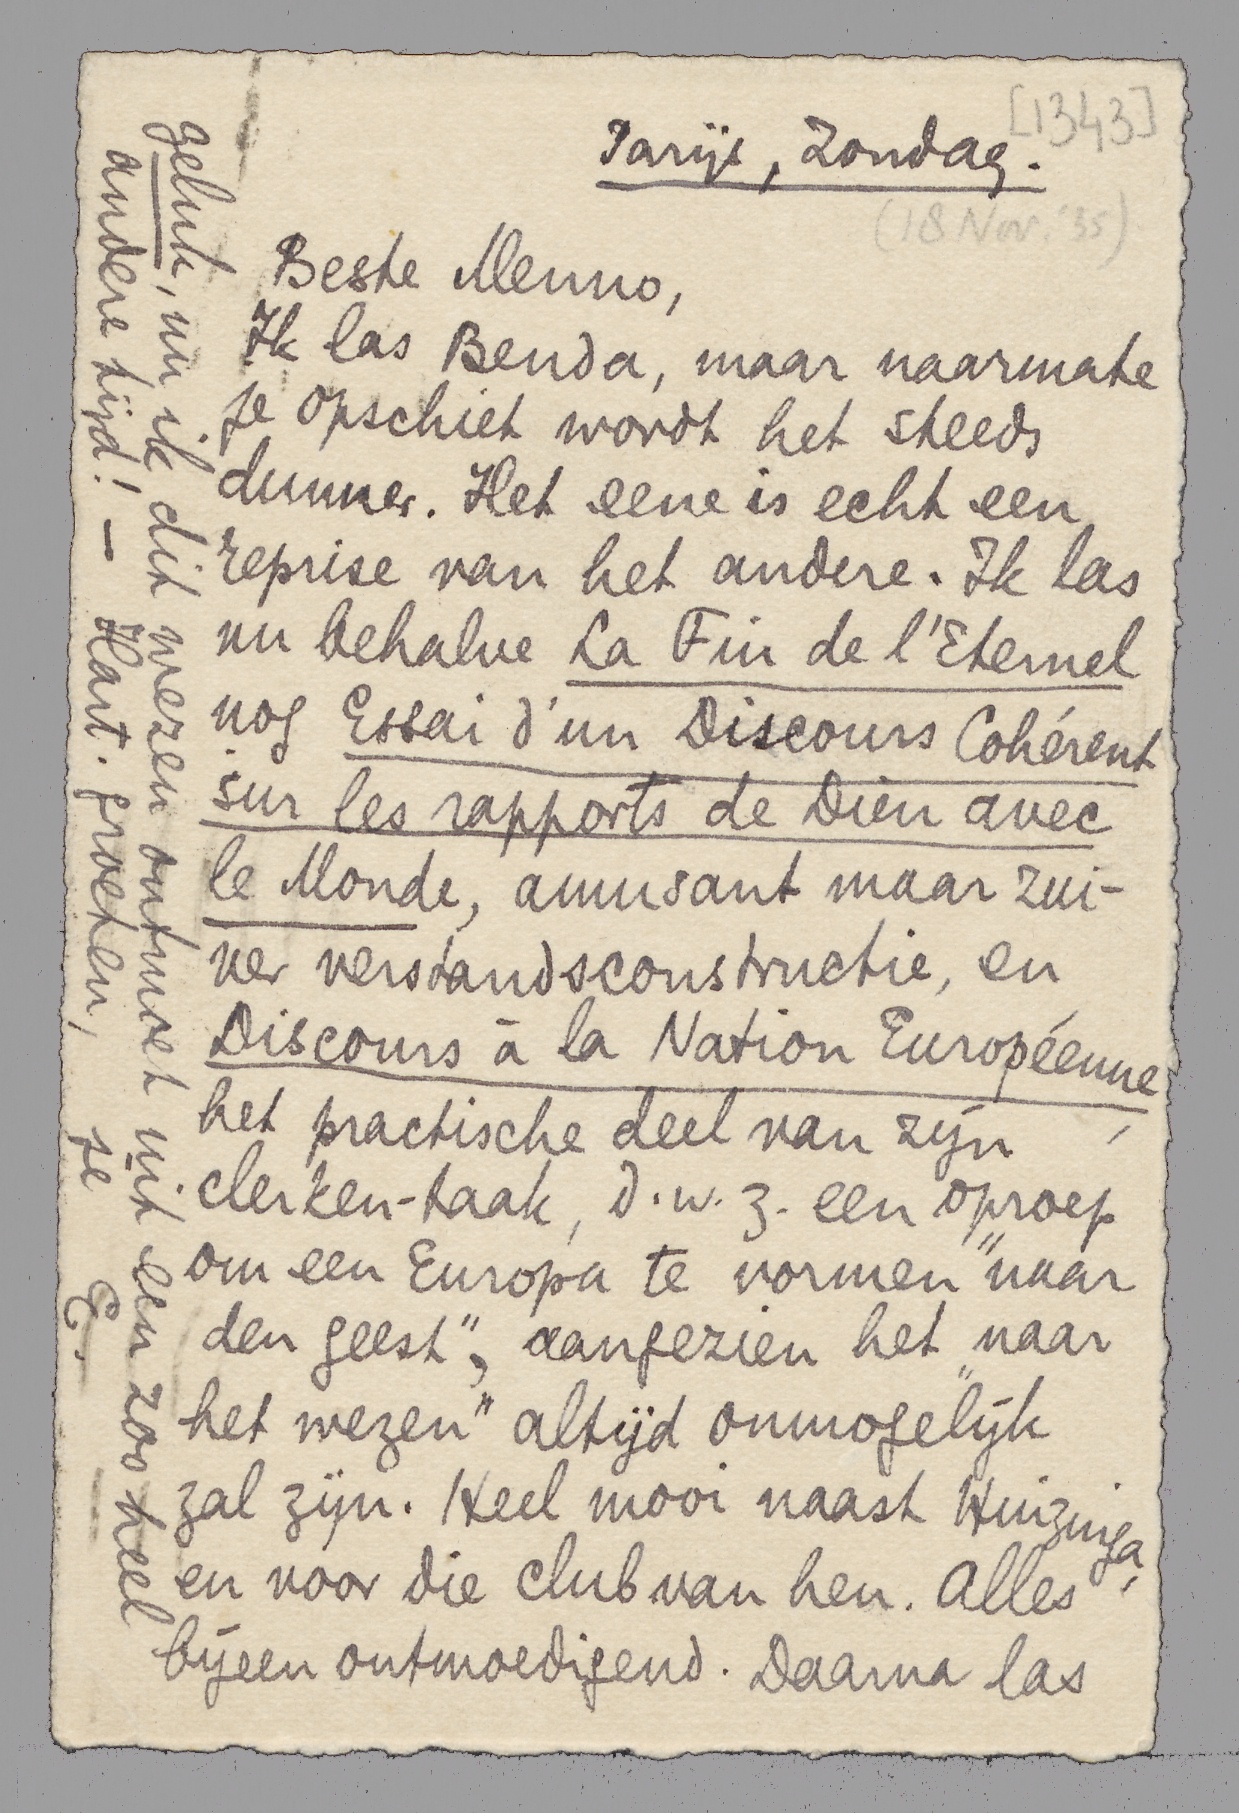 [1343]
Parijs, Zondag.
(18 Nov. '35)
Beste Menno,
Ik las Benda, maar naarmate
je opschiet wordt het steeds
dunner. Het eene is echt een
reprise van het andere. Ik las
nu behalve La Fin de l'Eternel
nog Essai d'un Discours Cohérent
sur les rapports de Dieu avec
le Monde, amusant maar zui-
ver verstandsconstructie, en
Discours à la Nation Européenne,
het practische deel van zijn
clerken-taak, d.w.z. een oproep
om een Europa te vormen "naar
den geest", aangezien het "naar
het wezen" altijd onmogelijk
zal zijn. Heel mooi naast Huizinga,
en voor die club van hen. Alles
bijeen ontmoedigend. Daarna las
geluk, nu ik dit wezen ontmoet uit een zoo heel
andere tijd! — Hart. groeten, je E.